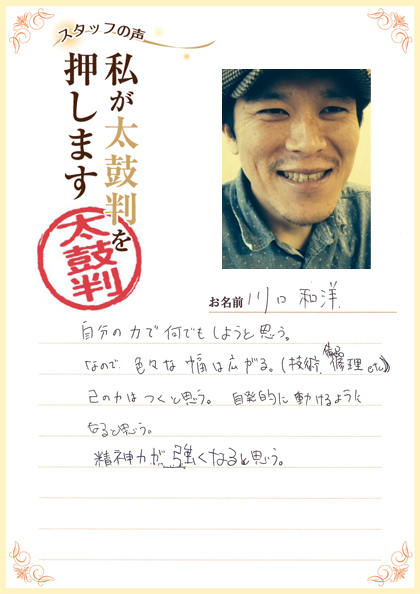 スタッフの声
私が太鼓判を
押します
太鼓判
お名前 川口 和洋
自分の力で何でもしようと思う。
なので 色々な 幅は広がる。(技術、修理 etc)
己の力はつくと思う。 自発的に動けるように
なると思う。
精神力が強くなると思う。